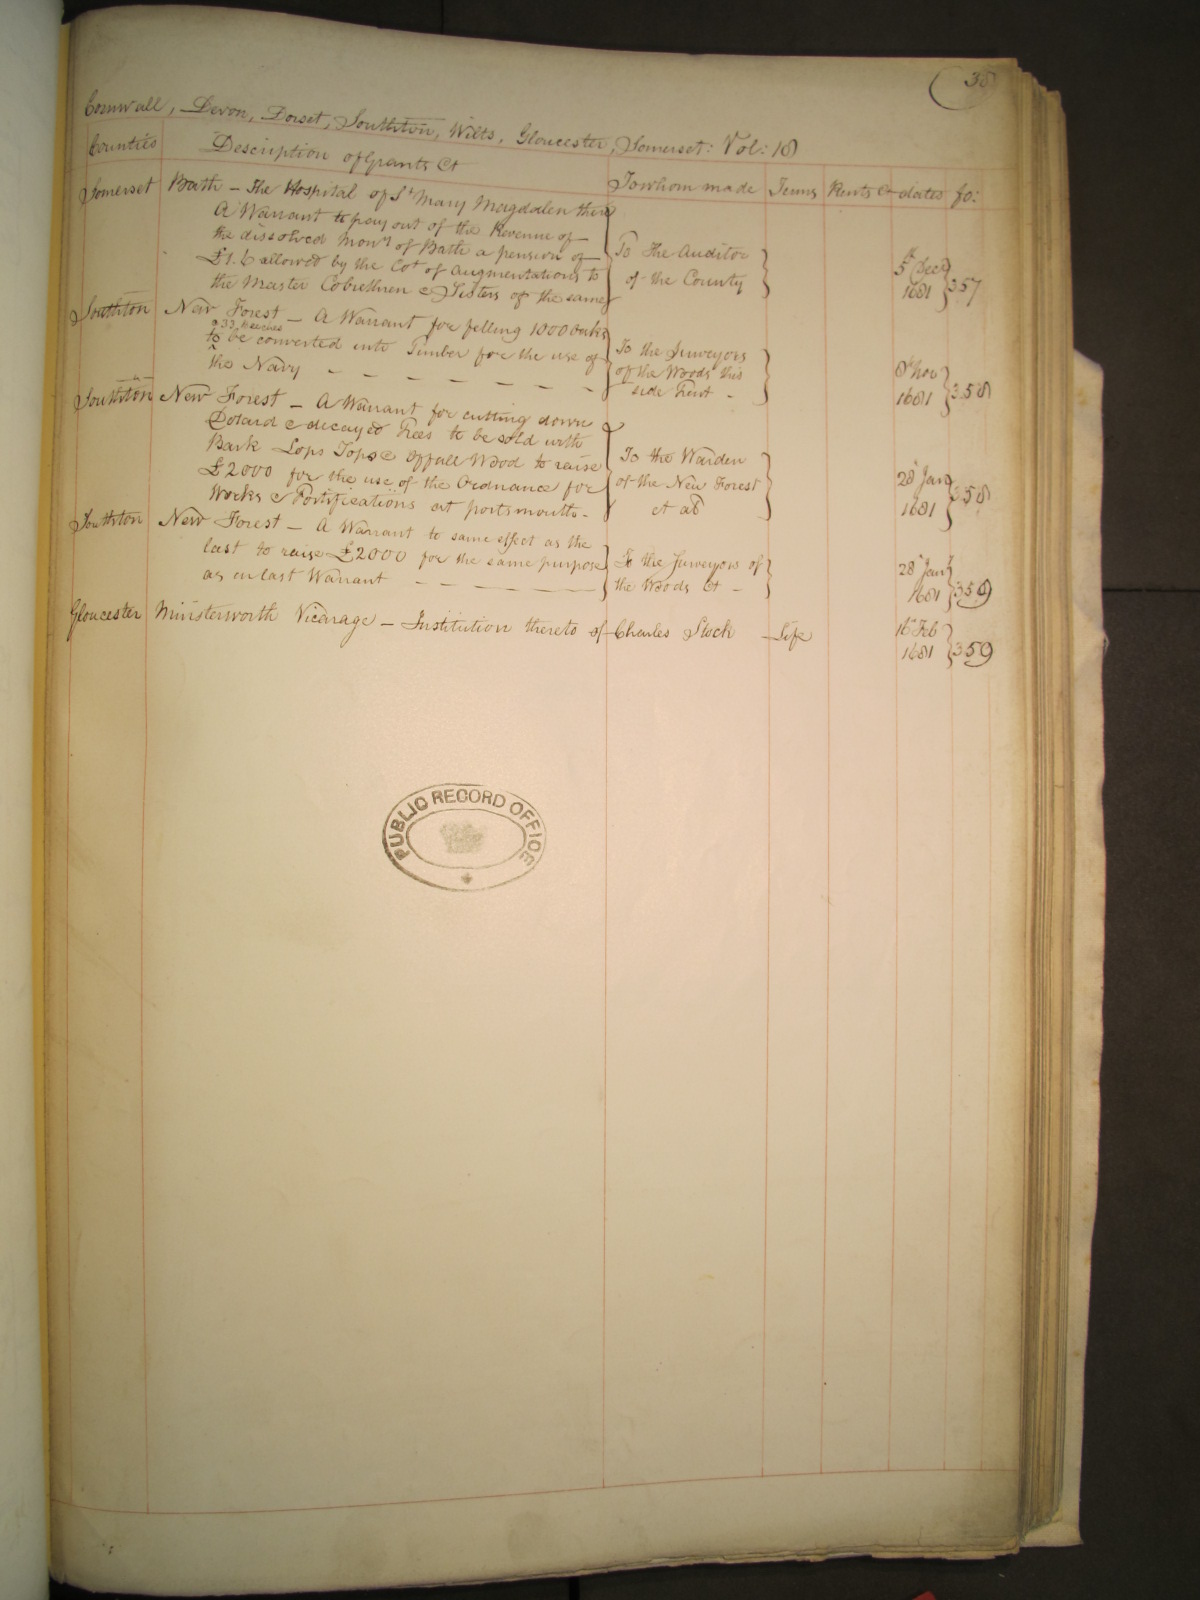 38
Cornwall, Devon, Dorset, Southton, Wilts, Gloucester, Somerset: Vol: 18
Counties Description of Grants &c To whom made Terms Rents &c dates fo:
Somerset Bath – The Hospital of St Mary Magdalen there
A Warrant to pay out of the Revenue of
the dissolved Mony of Bath a pension of
£1.6 allowed by the Cot of Augmentations to
the Master Cobrethren & Sisters of the same
To the Auditor
of the County
5th Decr
1681 357
Southton New Forest – A Warrant for felling 1000 Oaks
& 33 beeches
to be converted into Timber for the use of
the Navy
To the Surveyors
of the Woods this
side Trent –
8th Nov
1681 358
Southton New Forest – A Warrant for cutting down
Dotard & decayed Trees to be sold with
Bark Lops Tops & Offall Wood to raise
£2000 for the use of the Ordnance for
Works & Fortifications at portsmouth –
To the Warden
of the New Forest
et al
28 Jany
1681 358
Southton New Forest – A Warrant to same effect as the
last to raise £2000 for the same purpose
as in last Warrant
To the Surveyors of
the Woods &c –
28 Jany
1681 359
Gloucester Minsterworth Vicarage – Institution thereto of Charles Stock – Life
16th Feb
1681 359
PUBLIC RECORD OFFICE